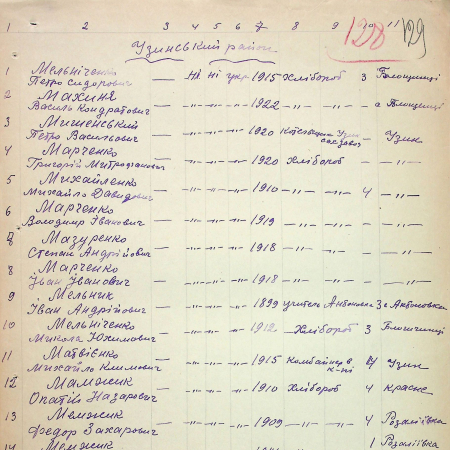 1 2 3 4 5 6 7 8 9 10 11
128 129
Узинський район
1 Мельніченко
Петро Сидорович — Ні Ні укр 1915 Хлібороб 3 Блощинці
2 Махиня
Василь Кондратович — -„- -„- -„- 1922 -„- -„- Блощинці
3
Петро Васильович — -„- -„- -„- 1920 Узин
4 Марченко
Григорій Митрофанович — -„- -„- -„- 1920 Хлібороб — -„-
5 Михайленко
Михайло Давидович — -„- -„- -„- 1910 -„- -„- 4 -„-
6 Марченко
Володимир Іванович — -„- -„- -„- 1919 -„- -„- — -„-
7 Мазуренко
Степан Андрійович — -„- -„- -„- 1918 -„- -„- — -„-
8 Марченко
Іван Іванович — -„- -„- -„- 1918 -„- -„- — -„-
9 Мельник
Іван Андрійович — -„- -„- -„- 1899 учитель
10 Мельніченко
Микола Юхимович — -„- -„- -„- 1912 Хлібороб 3
11 Матвієнко
Михайло Климович — -„- -„- -„- 1915 Комбайнер 4 Узин
12 Мамжик
Назарович — -„- -„- -„- 1910 Хлібороб 4 Красне
13 Мемжик
Федор Захарович — -„- -„- -„- 1909 -„- -„- 4 Розаліївка
14 Мемжик 1 Розаліївка